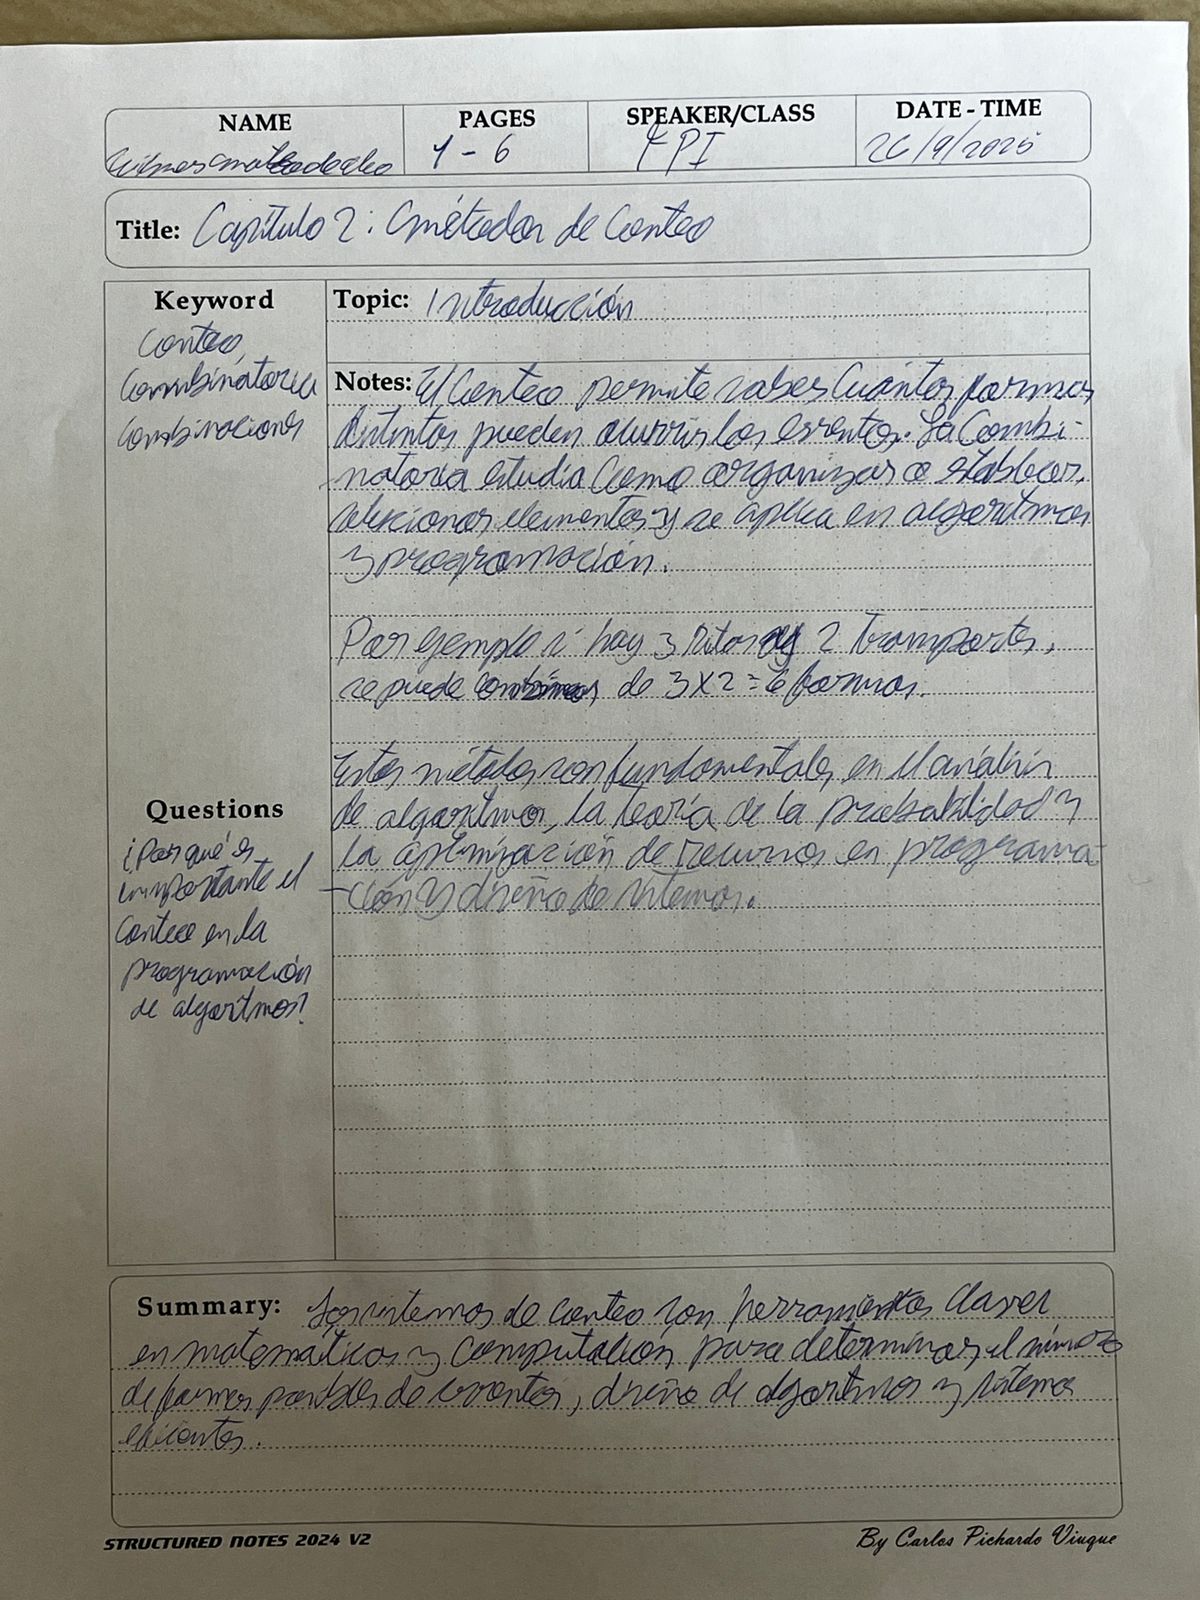 NAME PAGES SPEAKER/CLASS DATE - TIME
1 - 6 FPI 26/9/2025
Title: Capítulo 2: métodos de Conteo
Keyword
Conteo,
Combinatoria
Combinaciones
Topic: Introducción
Notes: El Conteo permite saber Cuántas formas
distintas pueden ocurrir los eventos. La Combi-
natoria estudia como organizar o establecer,
seleccionar elementos y se aplica en algoritmos
y programación.
Por ejemplo si hay 3 rutas y 2 transportes,
se puede combinar de 3 x 2 = 6 formas.
Estos métodos son fundamentales en el análisis
de algoritmos, la teoría de la probabilidad y
la optimización de recursos en programa-
-ción y diseño de sistemas.
Questions
¿Por qué es
importante el
Conteo en la
programación
de algoritmos?
Summary: Los sistemas de conteo son herramientas Claves
en matemáticas y computación para determinar el número
de formas posibles de eventos, diseño de algoritmos y sistemas
eficientes.
STRUCTURED NOTES 2024 V2
By Carlos Pichardo Viuque